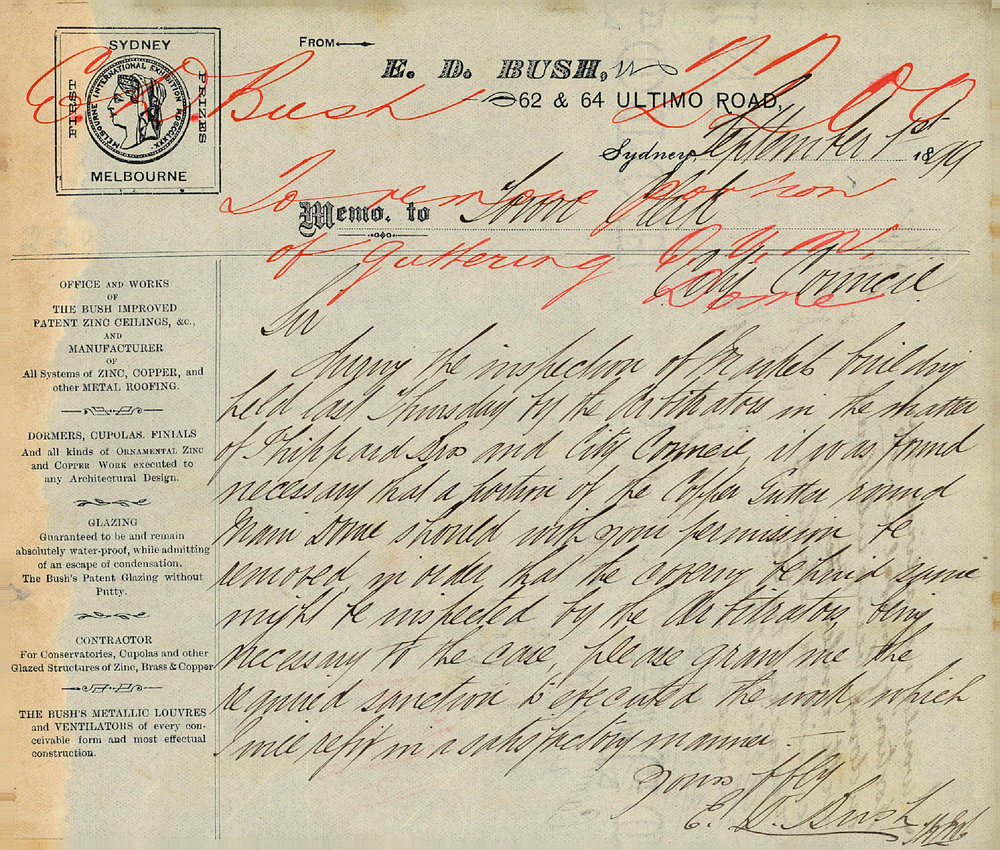 SYDNEY
FIRST
PRIZES
MELBOURNE INTERNATIONAL EXHIBITION MDCCCLXXX
MELBOURNE
FROM
E. D. BUSH,
62 & 64 ULTIMO ROAD,
Sydney, September 1st 1899
E. D. Bush
To remove portion
of guttering Q. V. M.
Dome
Memo. to Town Clerk
City Council
OFFICE AND WORKS
OF
THE BUSH IMPROVED
PATENT ZINC CEILINGS, &C.,
AND
MANUFACTURER
OF
All Systems of ZINC, COPPER, and
other METAL ROOFING.
DORMERS, CUPOLAS. FINIALS
And all kinds of ORNAMENTAL ZINC
and COPPER WORK executed to
any Architectural Design.
GLAZING
Guaranteed to be and remain
absolutely water-proof, while admitting
of an escape of condensation.
The Bush's Patent Glazing without
Putty.
CONTRACTOR
For Conservatories, Cupolas and other
Glazed Structures of Zinc, Brass & Copper
THE BUSH'S METALLIC LOUVRES
and VENTILATORS of every con-
ceivable form and most effectual
construction.
Sir
During the inspection of Markets building
held last Thursday by the Arbitrators in the matter
of Phippard Bros and City Council, it was found
necessary that a portion of the Copper Gutter round
Main Dome should with your permission be
removed in order that the behind same
might be inspected by the Arbitrators, being
necessary to the case please grant me the
required sanction to executed the work, which
I will refix in a satisfactory manner. —
Yours ffly
E. D. Bush